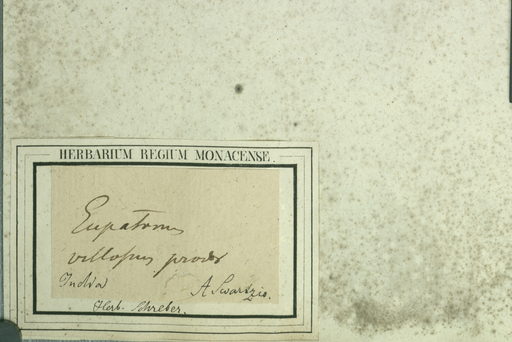 HERBARIUM REGIUM MONACENSE.
Eupatorium
villosum prodr
India A Swartzio.
Herb. Schreber.